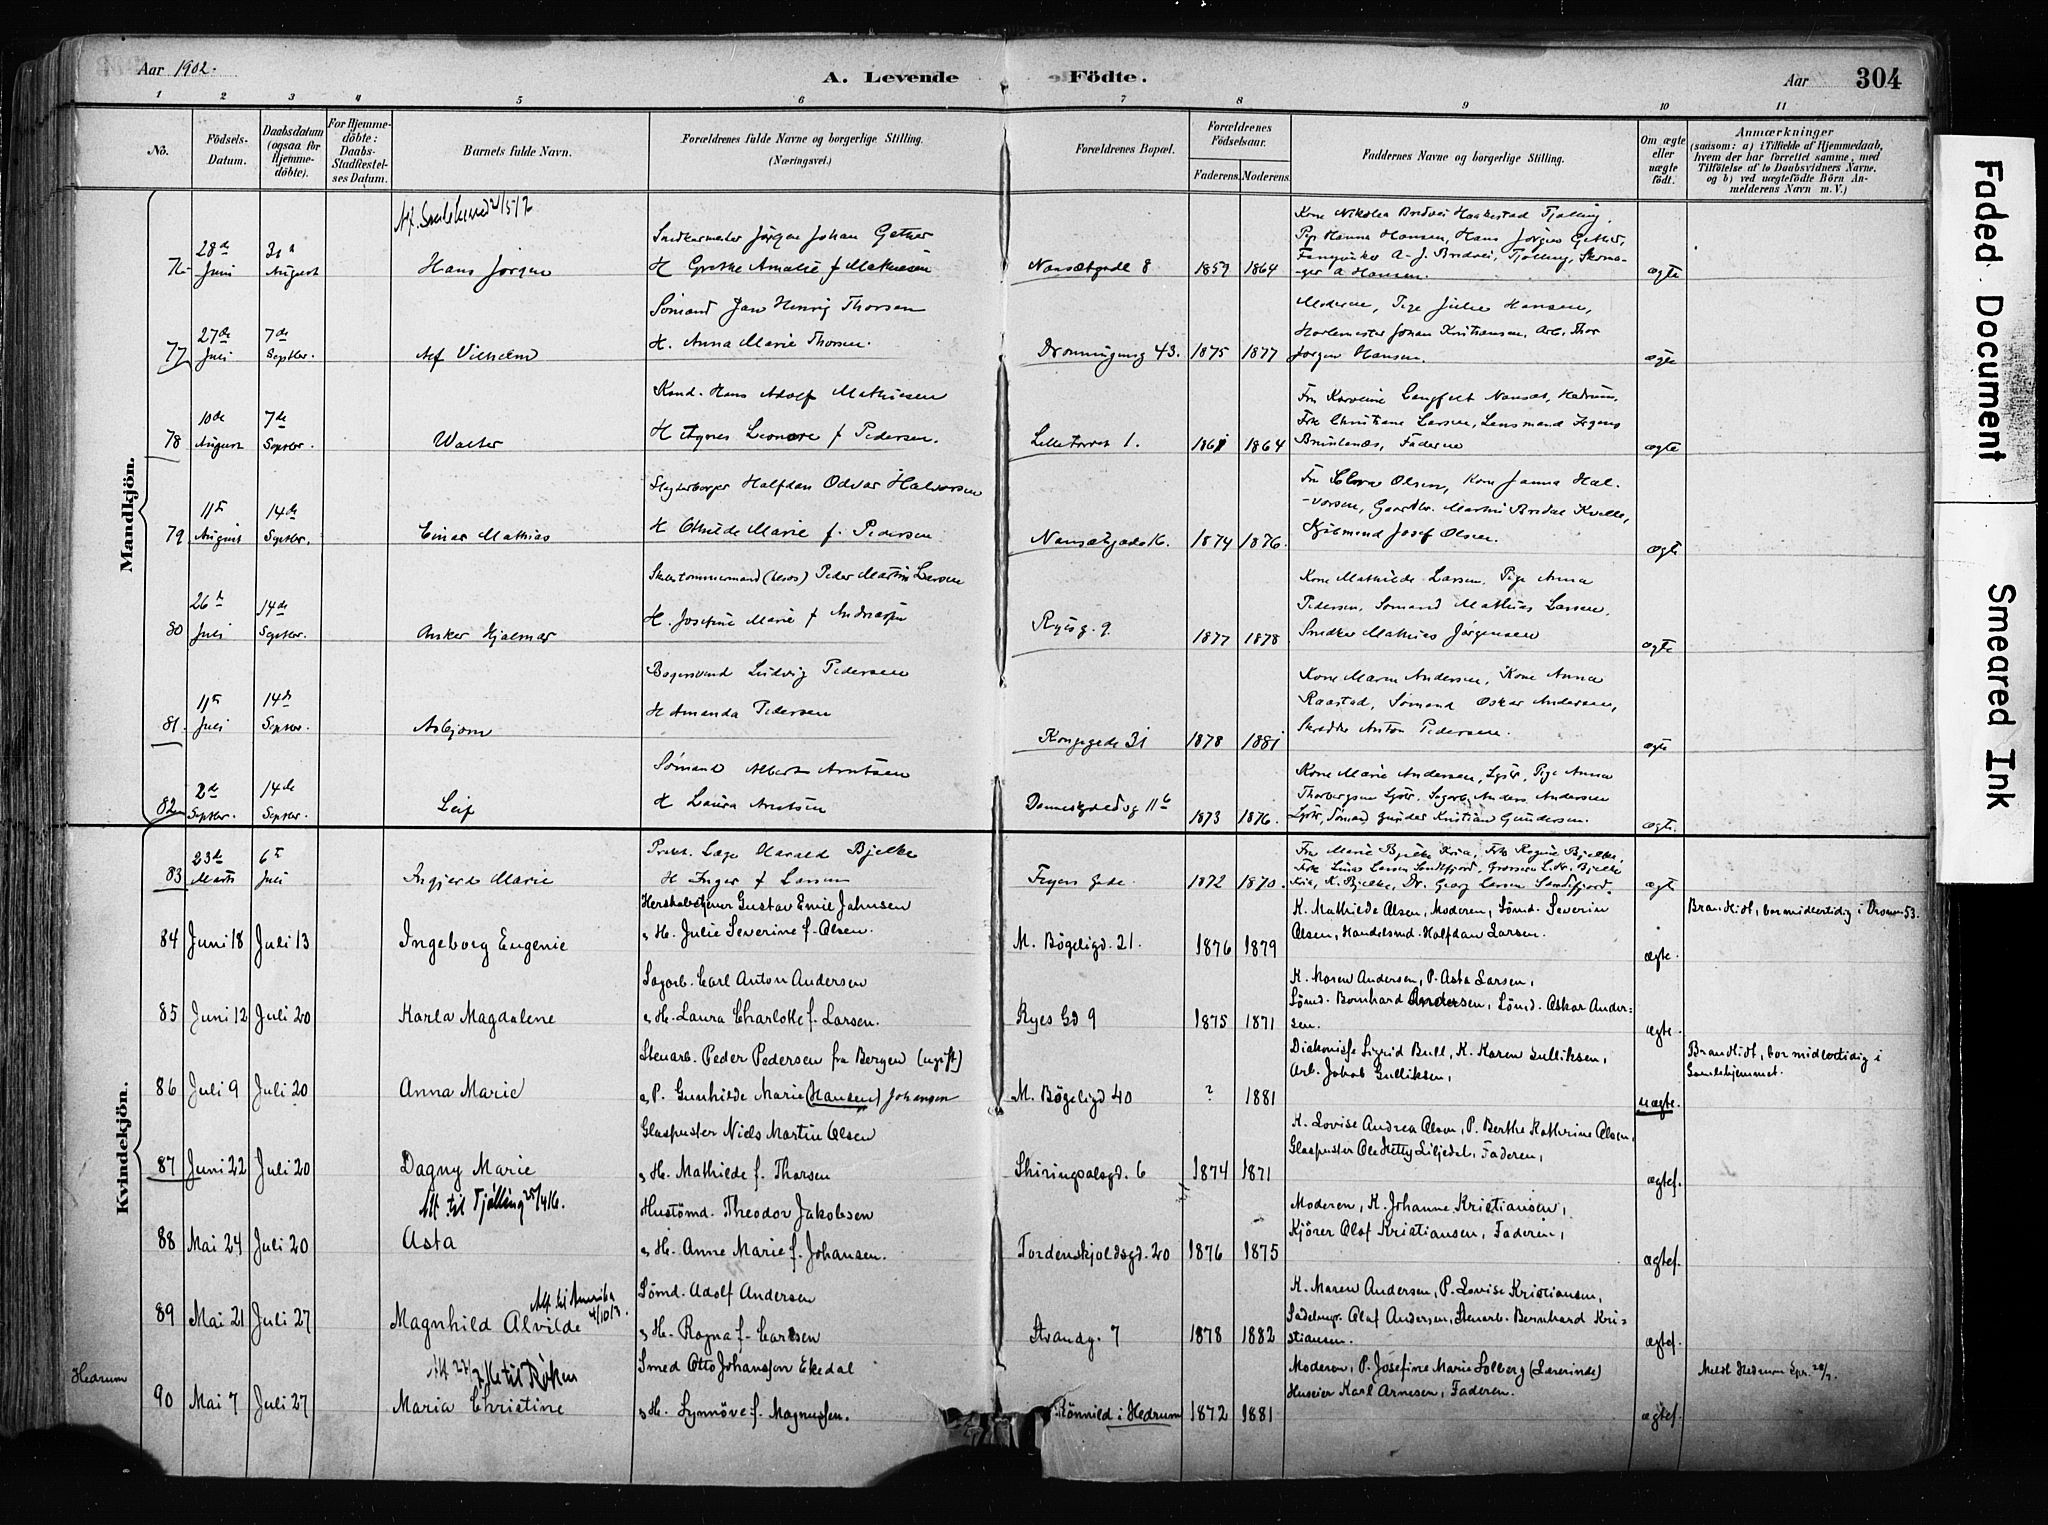 Aar 1902.
A. Levende Födte.
Aar 304
1 2 3 4 5 6 7 8 9 10 11
No.
Födsels-Datum.
Daabsdatum (ogsaa for Hjemme-döbte).
For Hjemme-döbte: Daabs-Stadfæstel-ses Datum.
Barnets fulde Navn.
Forældrenes fulde Navne og borgerlige Stilling. (Næringsvei.)
Forældrenes Bopæl.
Forældrenes Födselsaar.
Faderens. Moderens.
Faddernes Navne og borgerlige Stilling.
Om ægte eller uægte födt.
Anmærkninger
(saasom: a) i Tilfælde af Hjemmedaab, hvem der har forrettet samme, med Tilföielse af to Daabsvidners Navne, og b) ved uægtefödte Börn An-melderens Navn m. V.)
Mandkjön.
76 28de Juni August Hans Jørgen
Snedkermester Jørgen Johan Gether
H Grethe Amalie f Mathiesen
Nansetgade 8 1859 1864
Pige Hanna Hansen, Hans Jørgen Gether,
ægte
77 27de Juli 7de Septbr. Alf Vilhelm
Sømand Jan Henrig Thorsen
H. Anna Marie Thorsen.
43. 1875 1877
Moderen, Pige Julie Hansen,
Johan Kristiansen, Arb. Thor
Jørgen Hansen.
ægte
78 10de August 7de Septbr. Walter
Hans Adolf Mathiesen
H Agnes Leonore f Pedersen.
Lilletorvet 1. 1861 1864
Frk Christiane Larsen, Lensmand
Brunlanæs, Faderen
ægte
79 11te August 14de Septbr. Einar Mathias
Halfdan Odvar Halvorsen
H Othilde Marie f. Pedersen
Nansetgade 16. 1874 1876.
Fru Clara Olsen, Kone Janna Hal-
vorsen,
Kjøbmand Josef Olsen.
ægte
80 26de Juli 14de Septbr. Ansker Hjalmar
Skibstømmermand Peder Martin Larsen
H. Josefine Marie f
Ryesg. 9. 1877 1878
Kone Mathilde Larsen, Pige Anna
Pedersen, Sømand Mathias Larsen,
Snedker Mathias Jørgensen
ægte
81. 11te Juli 14de Septbr. Asbjørn
Bagersvend Ludvig Pedersen
H Amanda Pedersen
Kongegade 31 1878 1881
Kone Maren Andersen, Kone Anna
Raastad, Sømand Oskar Andersen,
Anton Pedersen.
ægte
82 2de Septbr. 14de Septbr. Leif
Sømand Albert Arntsen
H Laura Arntsen
11b 1873 1876.
Kone Marie Andersen, Pige Anna
Anders Andersen
Kristian Gundersen.
ægte.
Kvindekjön.
83 23de Marts 6te Juli Ingjerd Marie
Prakt. Læge Harald Bjelke
H Inger f Larsen
Feyers Gade. 1872 1870.
Fru Marie Bjelke Kria, Frk Ragna Bjelke,
Kria, K. Bjelke, Dr. Georg Larsen Sandefjord
ægte
84 Juni 18 Juli 13 Ingeborg Eugenie
Gustav Emil Jahnsen
o H. Julie Severine f. Olsen.
M. Bögeligd. 21. 1876 1879
K. Mathilde Olsen, Moderen, Sömd. Severin
Olsen, Handelsmd. Halfdan Larsen.
ægte.
Brandlidt, bor midlertidig i Dronn. 53.
85 Juni 12 Juli 20 Karla Magdalene
Sagarb. Carl Anton Andersen
o H. Laura Charlotte f. Larsen.
Ryes Gd 9 1875 1871
K. Maren Andersen, P. Asta Larsen,
Sömd. Bernhard Andersen, Sömd. Oskar Ander-
sen.
ægte.
86 Juli 9 Juli 20 Anna Marie
Stenarb. Peder Pedersen fra Bergen (ugift)
o P. Gunhilde Marie (Hansen) Johansen
M. Bögeligd 40 ? 1881
Diakonisse Sigrid Bull, K. Karen Gulliksen,
Arb. Jakob Gulliksen,
uægte.
Brandlidt, bor midlertidig i
Samlehjemmet.
87 Juni 22 Juli 20 Dagny Marie
Glaspuster Niels Martin Olsen
o H. Mathilde f. Thorsen
Skiringsalsgd. 6 1874 1871
K. Lovise Andrea Olsen, P. Berthe Kathrine Olsen,
Glaspuster Ole Hetty Liljedal, Faderen,
ægtef.
Att til Tjølling 25/4 16.
88 Mai 24 Juli 20 Asta
Hustömd. Theodor Jakobsen
o H. Anne Marie f. Johansen.
Tordenskjoldsgd. 20 1876 1875
Moderen, K. Johanne Kristiansen,
Kjörer Olaf Kristiansen, Faderen,
ægtef.
89 Mai 21 Juli 27 Magnhild Alvilde
Att til Amerika
Sömd. Adolf Andersen
o H. Ragna f. Carlsen
Strandg. 7 1878 1882
K. Maren Andersen, P. Lovise Kristiansen,
Sadelmgr. Olaf Andersen, Stenarb. Bernhard Kri-
stiansen.
ægtef.
Hedrum
90 Mai 7 Juli 27 Maria Christine
Smed Otto Johansson Ekedal
o H. Synnöve f. Magnussen.
Rönnild i Hedrum 1872 1881
Moderen, P. Josefine Marie Solberg (Lærerinde)
Huseier Karl Arnesen, Faderen.
ægtef.
Meldt Hedrum
Faded Document
Smeared Ink